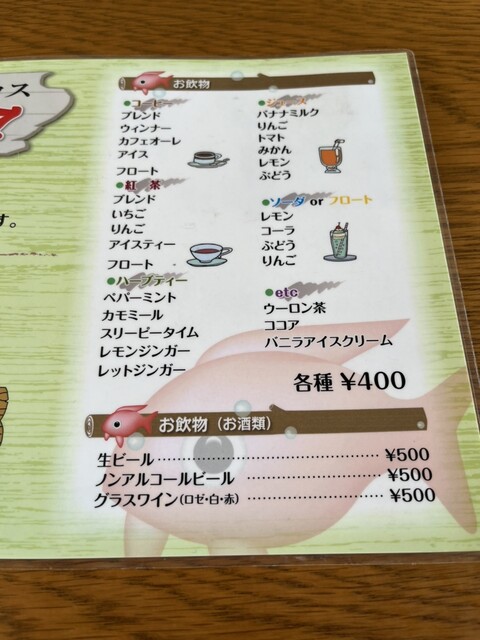 クス
す。
お飲物
●コーヒー
ブレンド
ウィンナー
カフェオーレ
アイス
フロート
●紅 茶
ブレンド
いちご
りんご
アイスティー
フロート
●ハーブティー
ペパーミント
カモミール
スリーピータイム
レモンジンガー
レットジンガー
●ジュース
バナナミルク
りんご
トマト
みかん
レモン
ぶどう
●ソーダ or フロート
レモン
コーラ
ぶどう
りんご
●etc
ウーロン茶
ココア
バニラアイスクリーム
各種 ¥400
お飲物(お酒類)
生ビール ¥500
ノンアルコールビール ¥500
グラスワイン(ロゼ・白・赤) ¥500